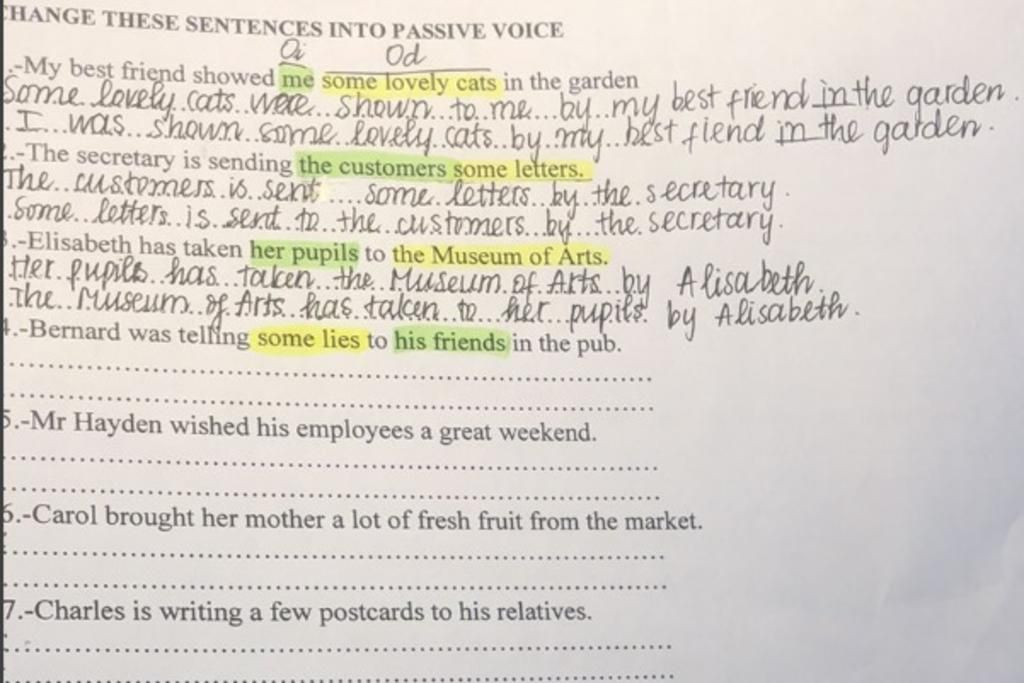 CHANGE THESE SENTENCES INTO PASSIVE VOICE
Oi Od
.-My best friend showed me some lovely cats in the garden
Some lovely cats were shown to me by my best friend in the garden.
I was shown some lovely cats by my best fiend in the garden.
.-The secretary is sending the customers some letters.
The customers is sent some letters by the secretary.
Some letters is sent to the customers by the secretary.
.-Elisabeth has taken her pupils to the Museum of Arts.
Her pupils has taken the Museum of Arts by Alisabeth.
The Museum of Arts has taken to her pupils by Alisabeth.
4.-Bernard was telling some lies to his friends in the pub.
5.-Mr Hayden wished his employees a great weekend.
6.-Carol brought her mother a lot of fresh fruit from the market.
7.-Charles is writing a few postcards to his relatives.